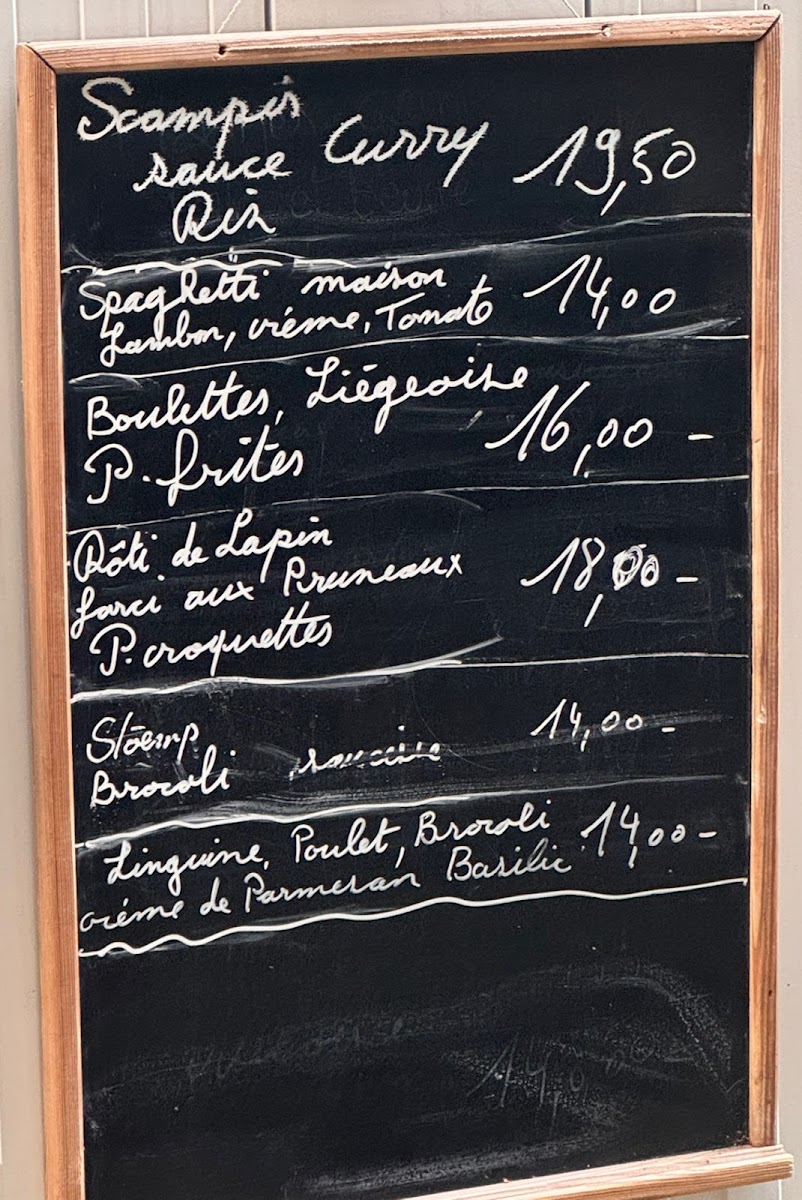 Scampis
sauce Curry 19,50
Riz
Spaghetti maison 14,00
Jambon, crème, Tomate
Boulettes, Liégeoise
P. frites 16,00 -
Rôti de Lapin
farci aux Pruneaux 18,00 -
P. croquettes
Stoemp 14,00 -
Brocoli saucisse
Linguine, Poulet, Brocoli 14,00 -
crème de Parmesan Basilic